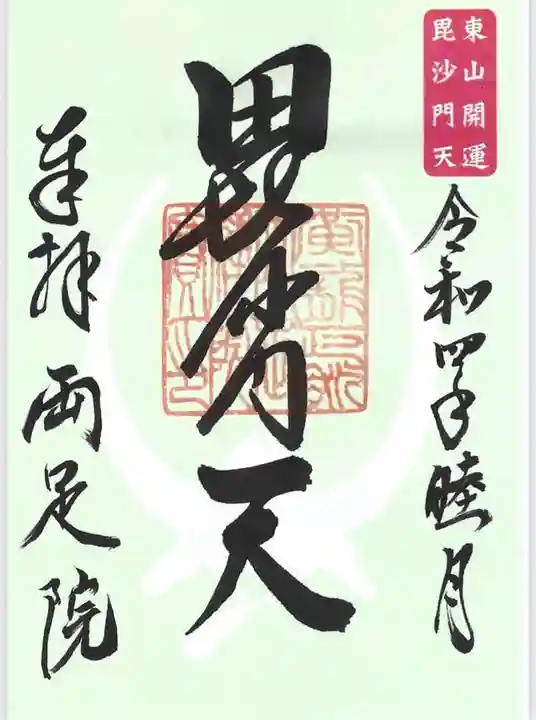 東山開運
毘沙門天
令和四年睦月
毘沙門天
奉拝
両足院